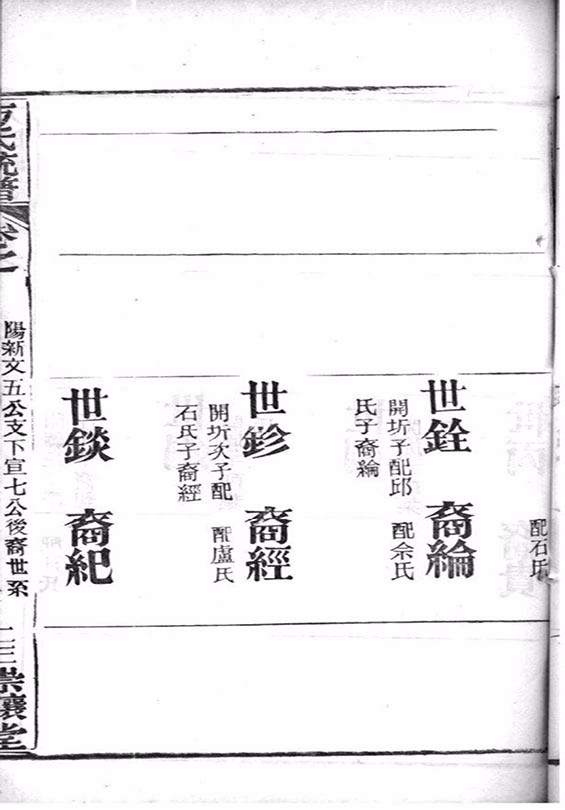 配石氏
世銓 裔綸
開圻子配邱 配余氏
氏子裔綸
世鉁 裔經
開圻次子配 配盧氏
石氏子裔經
世錟 裔紀
氏統譜
卷之
陽新文五公支下宣七公後裔世系
崇讓堂